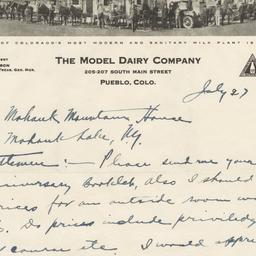 OF COLORADO'S MOST MODERN AND SANITARY MILK PLANT IS
THE MODEL DAIRY COMPANY
205-207 SOUTH MAIN STREET
PUEBLO, COLO.
TREAS. GEN. MGR.
July 27
Mohonk Mountain House
Mohonk Lake, N.Y.
Gentlemen :- Please send me your
anniversary booklet, also I should
prices for an outside room
Do prices include
course etc. I would